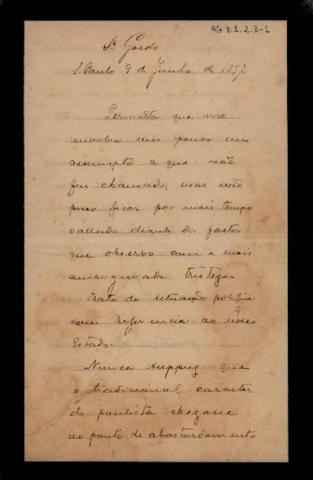 AG 3.1.2.3-1
Sr. Gordo
S. Paulo 9 de Junho de 1897
Permitta que me
envolva um pouco em
assumpto a que não
fui chamado, mas não
posso ficar por mais tempo
callado diante de factos
que observo com a mais
amargurada tristeza.
Trato da situação politica
com referencia ao nosso
Estado.
Nunca suppuz que
o tradicional caracter
do paulista chegasse
ao ponto de abastardamento